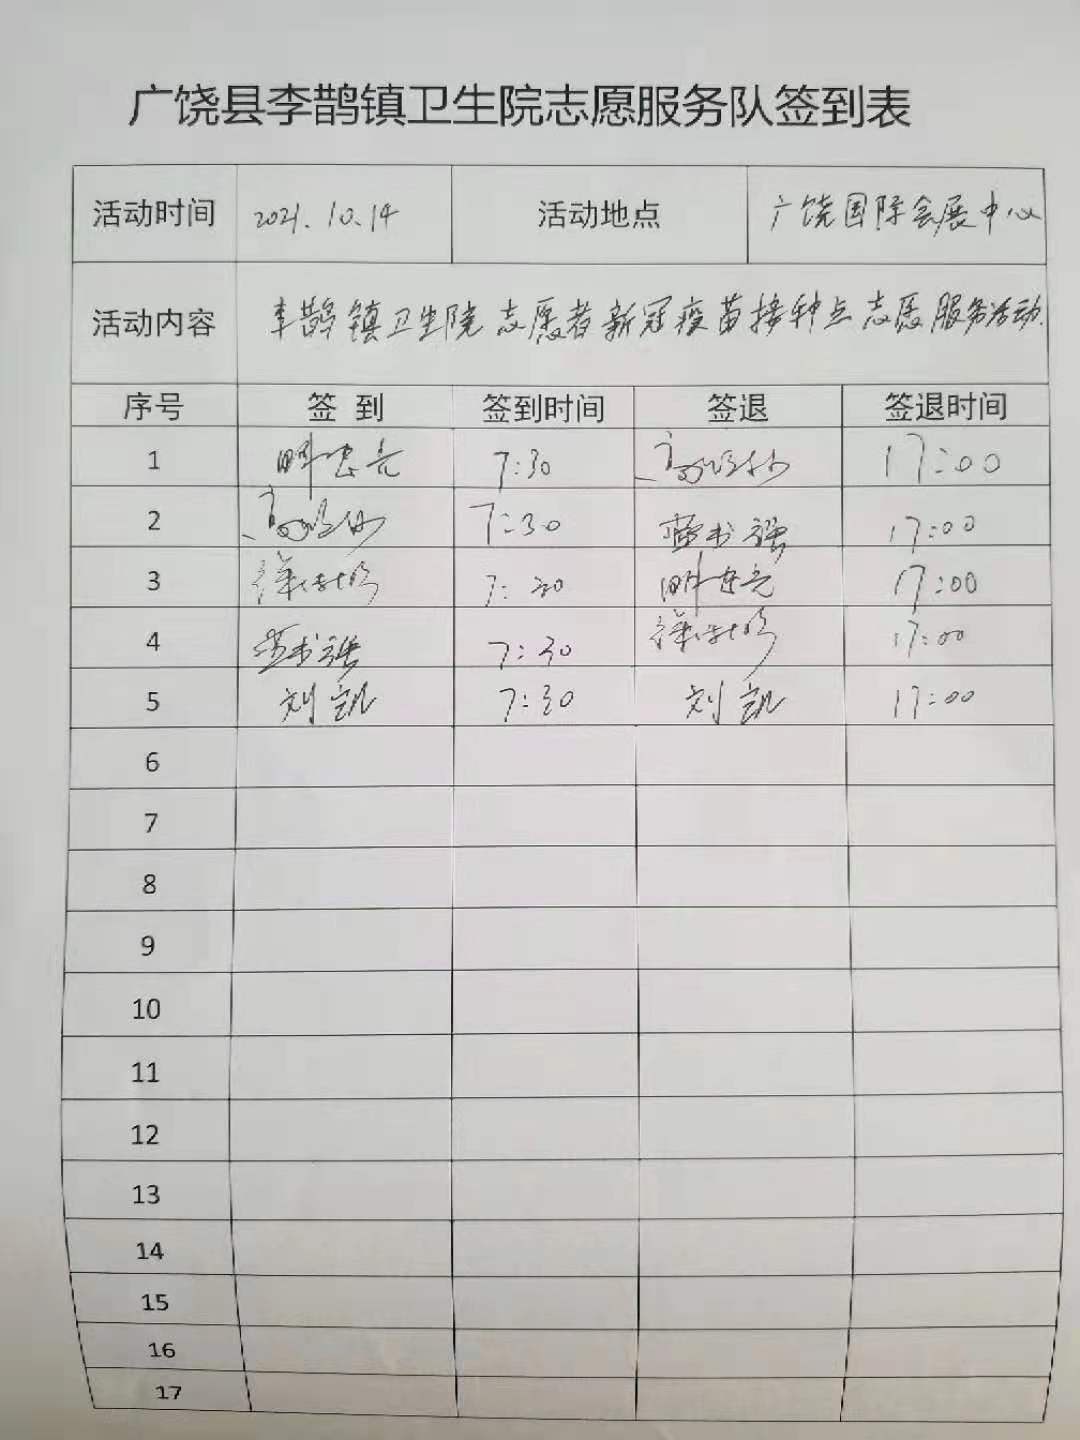 广饶县李鹊镇卫生院志愿服务队签到表
活动时间 2021.10.14 活动地点 广饶国际会展中心
活动内容 李鹊镇卫生院志愿者新冠疫苗接种点志愿服务活动.
序号 签到 签到时间 签退 签退时间
1 7:30 17:00
2 7:30 17:00
3 7:30 17:00
4 7:30 17:00
5 刘凯 7:30 刘凯 17:00
6
7
8
9
10
11
12
13
14
15
16
17